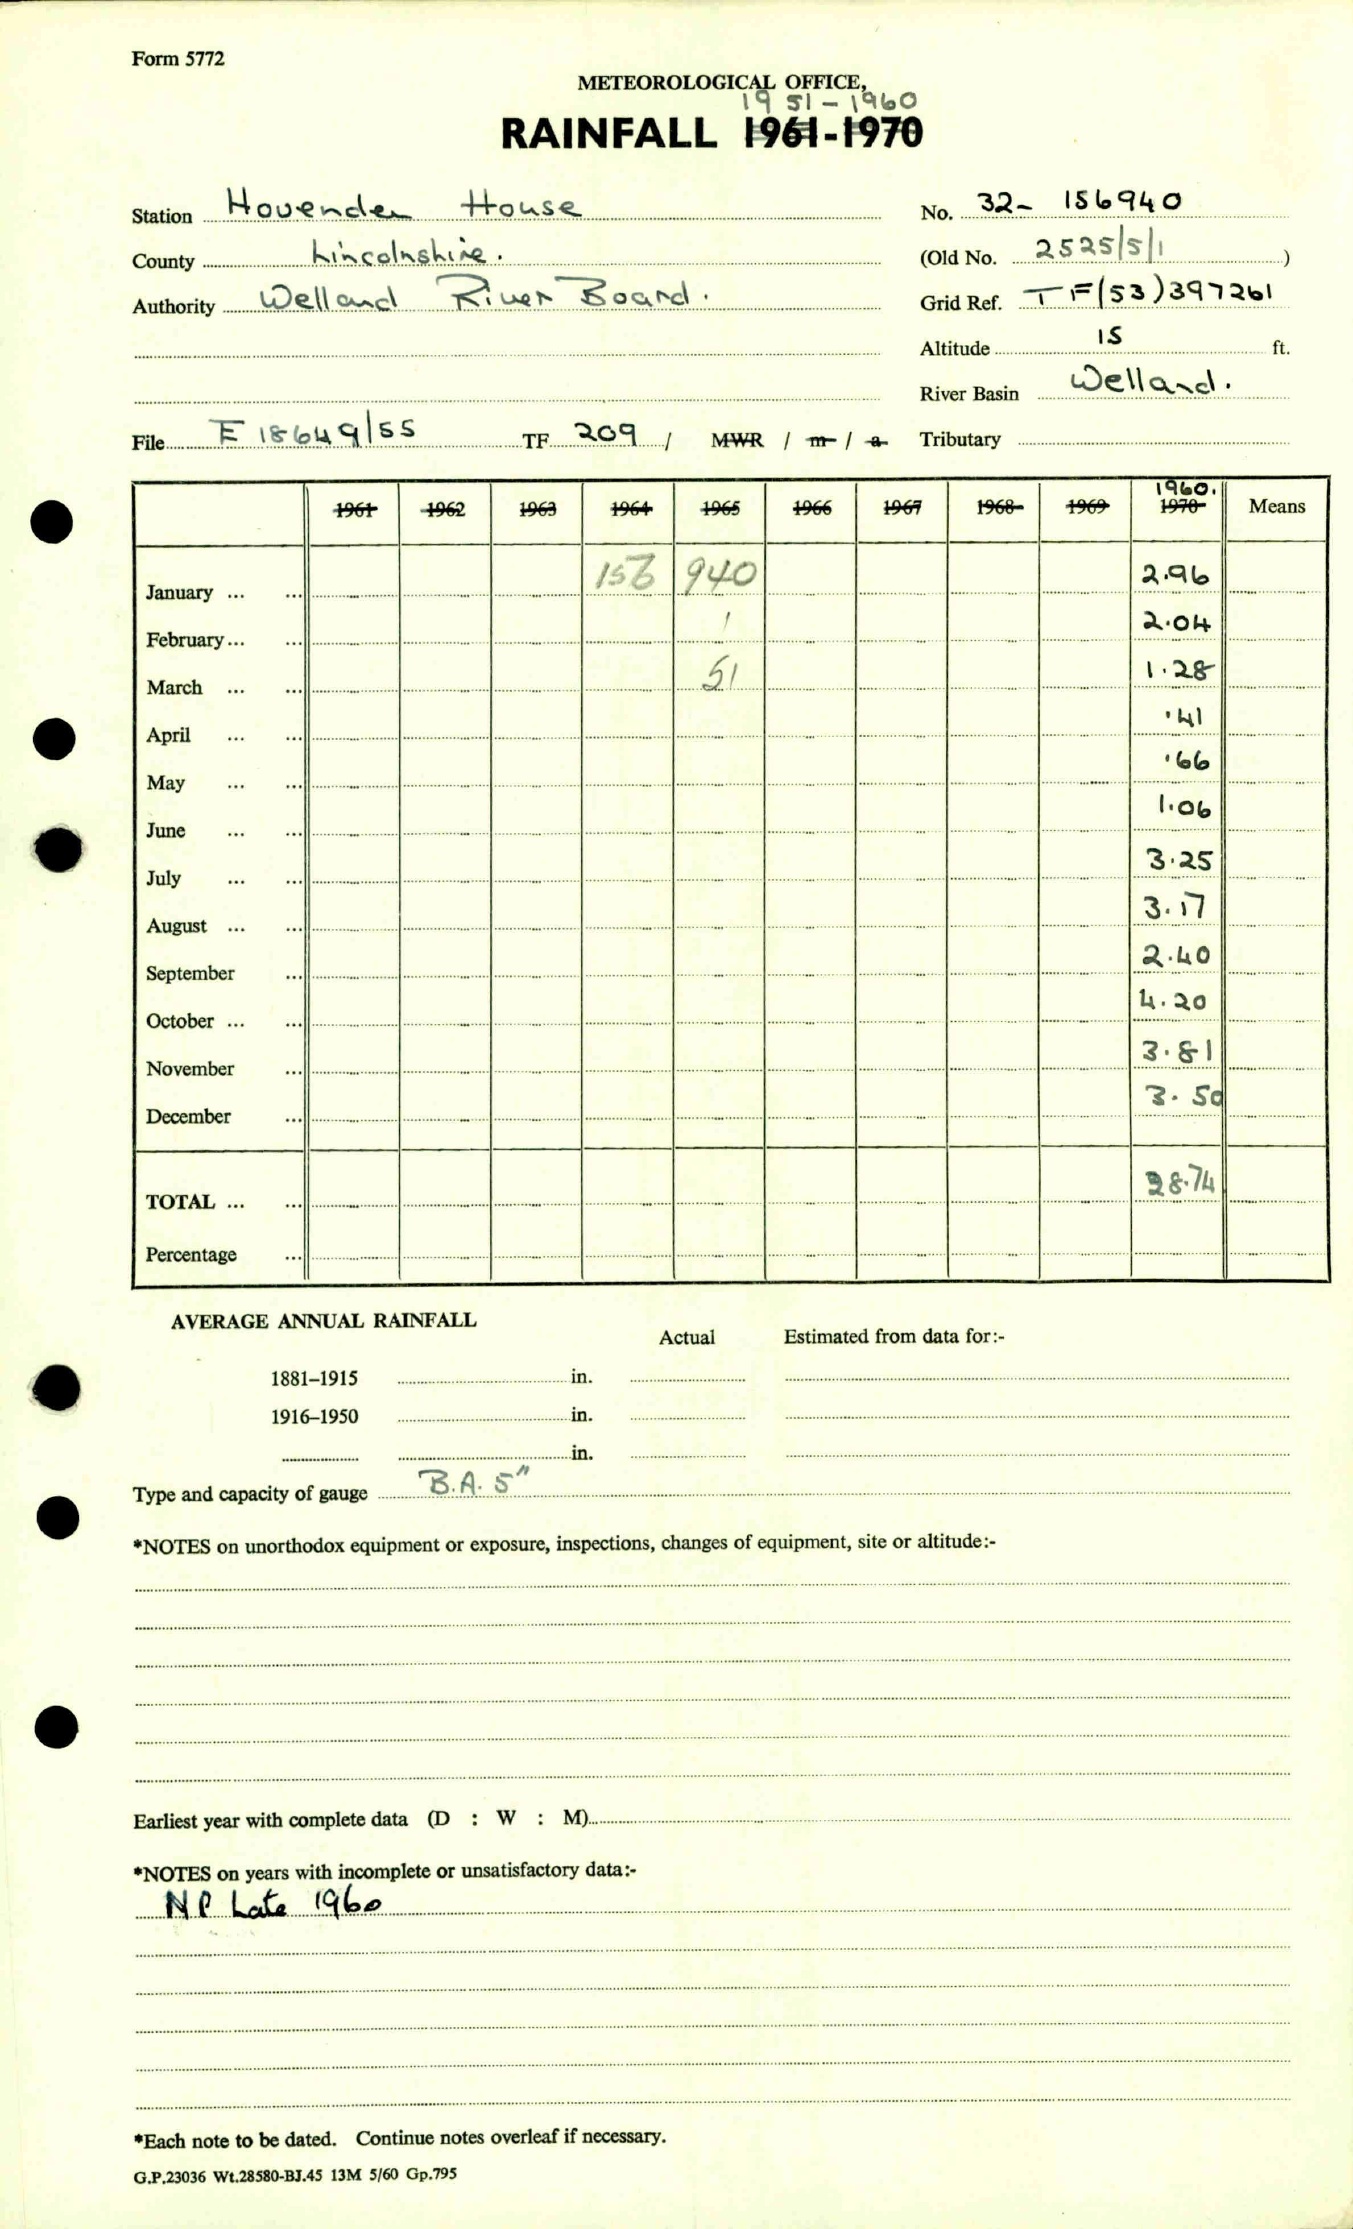 Form 5772
METEOROLOGICAL OFFICE,
1951-1960
RAINFALL 1961-1970
Station Hovenden House No. 32- 156940
County Lincolnshire. (Old No. 2525/5/1 )
Authority Welland River Board. Grid Ref. TF(53)397261
Altitude 15 ft.
River Basin Welland.
File E 18649/55 TF 209 / MWR / m / a Tributary
1960.
1961 1962 1963 1964 1965 1966 1967 1968 1969 1970 Means
January ... ... 156 940 2.96
February... ... 1 2.04
March ... ... 51 1.28
April ... ... .41
May ... ... .66
June ... ... 1.06
July ... ... 3.25
August ... ... 3.17
September ... 2.40
October ... ... 4.20
November ... 3.81
December ... 3.50
TOTAL ... ... 28.74
Percentage ...
AVERAGE ANNUAL RAINFALL
Actual Estimated from data for:-
1881–1915 in.
1916–1950 in.
in.
Type and capacity of gauge B.A. 5"
*NOTES on unorthodox equipment or exposure, inspections, changes of equipment, site or altitude:-
Earliest year with complete data (D : W : M)
*NOTES on years with incomplete or unsatisfactory data:-
NP Late 1960
*Each note to be dated. Continue notes overleaf if necessary.
G.P.23036 Wt.28580-BJ.45 13M 5/60 Gp.795